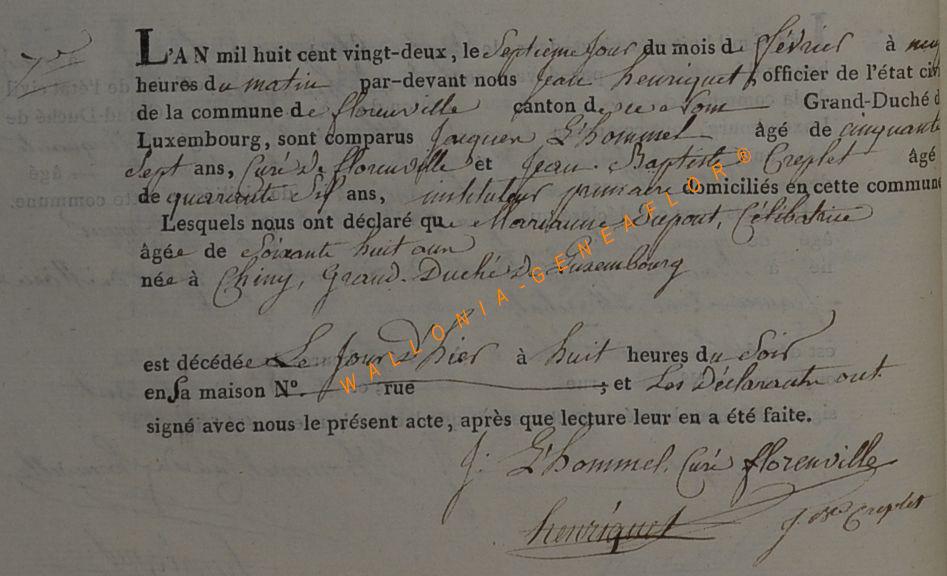 7ᵉ
L'AN mil huit cent vingt-deux, le Septième Jour du mois de février à neuf
heures du matin par-devant nous Jean henriquet, officier de l'état civil
de la commune de florenville canton de Grand-Duché d
Luxembourg, sont comparus Jacques L'hommel âgé de cinquante
Sept ans, Curé de florenville et Jean-Baptiste Creplet âgé
de quarante Six ans, instituteur primaire domiciliés en cette commune
Lesquels nous ont déclaré que Marianne Dupont, Célibatrice
âgée de Soixante huit ans
née à Chiny, Grand-Duché de Luxembourg
est décédée Le Jour d'hier à huit heures du Soir
en Sa maison N°. rue ; et Les Déclarants ont
signé avec nous le présent acte, après que lecture leur en a été faite.
J. L'hommel, Curé florenville
henriquet J Bte Creplet
WALLONIA-GENEAFLOR®